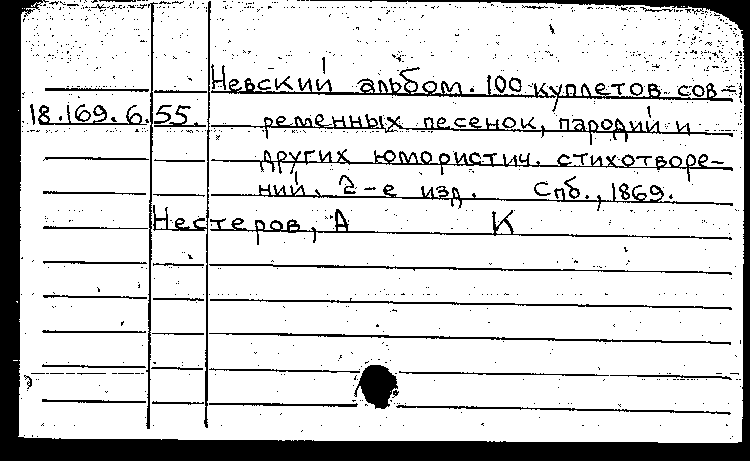 Невский альбом. 100 куплетов сов-
18.169.6.55. ременных песенок, пародий и
других юмористич. стихотворе-
ний. 2-е изд. Спб., 1869.
Нестеров, А К